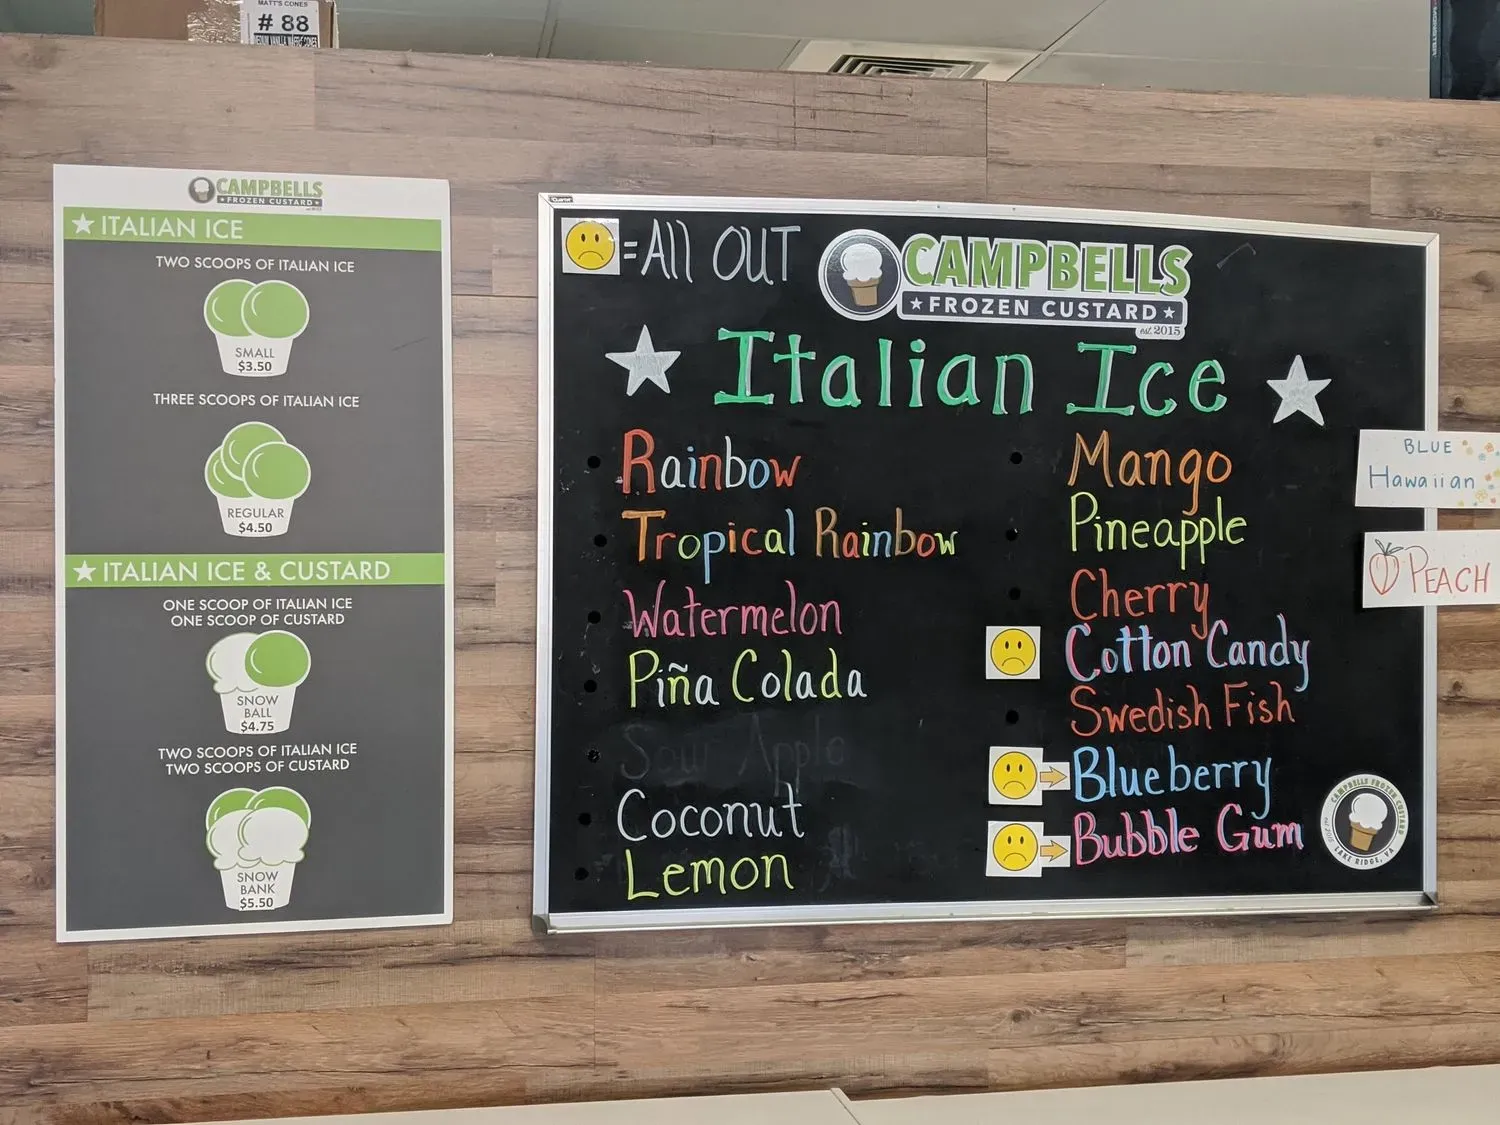 MATT'S CONES
# 88
MEDIUM VANILLA WAFFLE CONES
CAMPBELLS
FROZEN CUSTARD
ITALIAN ICE
TWO SCOOPS OF ITALIAN ICE
SMALL
$3.50
THREE SCOOPS OF ITALIAN ICE
REGULAR
$4.50
ITALIAN ICE & CUSTARD
ONE SCOOP OF ITALIAN ICE
ONE SCOOP OF CUSTARD
SNOW
BALL
$4.75
TWO SCOOPS OF ITALIAN ICE
TWO SCOOPS OF CUSTARD
SNOW
BANK
$5.50
=All OUT
CAMPBELLS
FROZEN CUSTARD
est. 2015
Italian Ice
Rainbow
Tropical Rainbow
Watermelon
Piña Colada
Sour Apple
Coconut
Lemon
Mango
Pineapple
Cherry
Cotton Candy
Swedish Fish
Blueberry
Bubble Gum
BLUE
Hawaiian
PEACH
CAMPBELLS FROZEN CUSTARD
est. 2015
LAKE RIDGE, VA